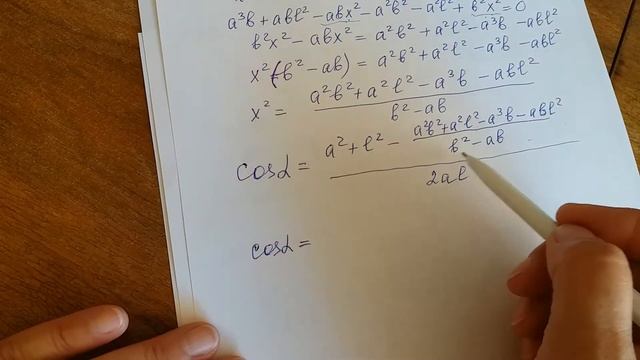 a³b + abl² − abx² − a²b² − a²l² + b²x² = 0
b²x² − abx² = a²b² + a²l² − a³b − abl²
x²(b² − ab) = a²b² + a²l² − a³b − abl²
x² = (a²b² + a²l² − a³b − abl²) / (b² − ab)
cosα = (a² + l² − (a²b² + a²l² − a³b − abl²) / (b² − ab)) / (2al)
cosα =